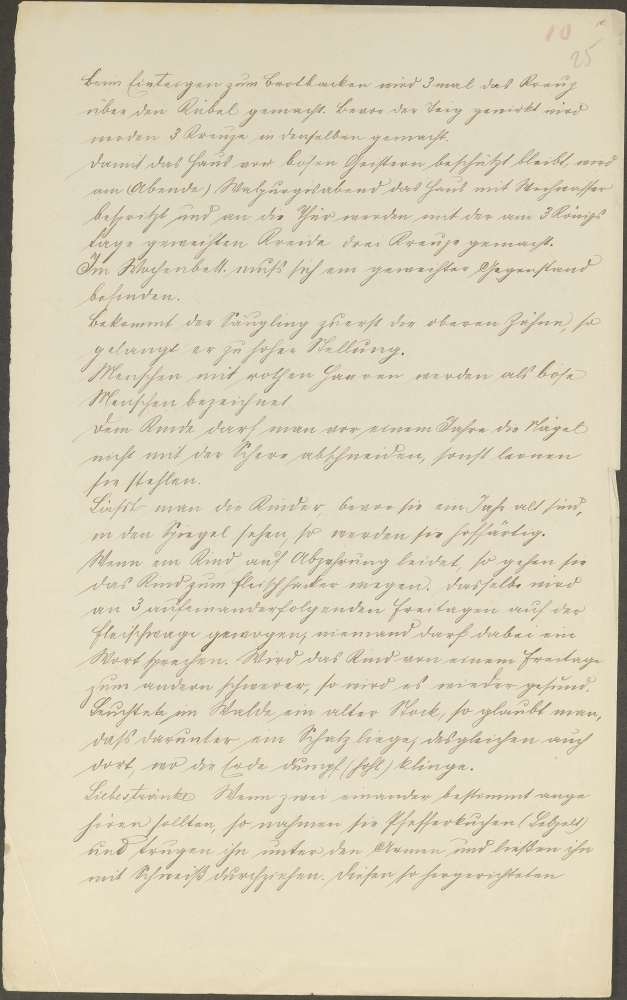 10
25
Beim Einteigen zum Brotbacken wird 3 mal das Kreuz
über den Kübel gemacht. Bevor der Teig gewirkt wird
werden 3 Kreuze in denselben gemacht.
Damit das Haus vor bösen Geistern beschützt bleibt wird
am (Abende) Walpurgisabend das Haus mit Weihwasser
bespritzt und an die Thür werden mit der am 3 Königs
tage geweihten Kreide drei Kreuze gemacht.
Im Wochenbett muß sich ein geweihter Gegenstand
befinden.
Bekommt der Säugling zuerst die oberen Zähne, so
gelangt er zu hoher Stellung.
Menschen mit rothen Haaren werden als böse
Menschen bezeichnet
Dem Kinde darf man vor einem Jahre die Nägel
nicht mit der Schere abschneiden, sonst lernen
sie stehlen.
Läßt man die Kinder, bevor sie ein Jahr alt sind,
in den Spiegel sehen, so werden sie hoffärtig.
Wenn ein Kind auf Abzehrung leidet, so gehen sie
das Kind zum Fleischhacker wegen. Dasselbe wird
an 3 aufeinanderfolgenden Freitagen auf der
Fleischwage gewogen, niemand darf dabei ein
Wort sprechen. Wird das Kind von einem Freitage
zum andern schwerer, so wird es wieder gesund.
Leuchtete im Walde ein alter Stock, so glaubt man,
daß darunter ein Schatz liege, desgleichen auch
dort, wo die Erde dumpf (hohl) klinge.
Liebestränke Wenn zwei einander bestimmt ange
hören sollten, so nahmen sie Pfefferkuchen (Lebzelt)
und trugen ihn unter den Armen und ließen ihn
mit Schweiß durchziehen. Diesen so hergerichteten